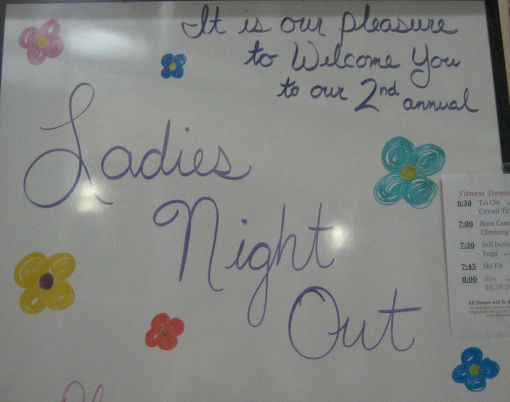 It is our pleasure
to Welcome You
to our 2nd annual
Ladies
Night
Out
Fitness Demo
6:30 Tai Chi
Circuit Tra
7:00 Boot Cam
Climbing
7:30 Self Defen
Yoga
7:45 Ski Fit
8:00 Abs
20.20.20